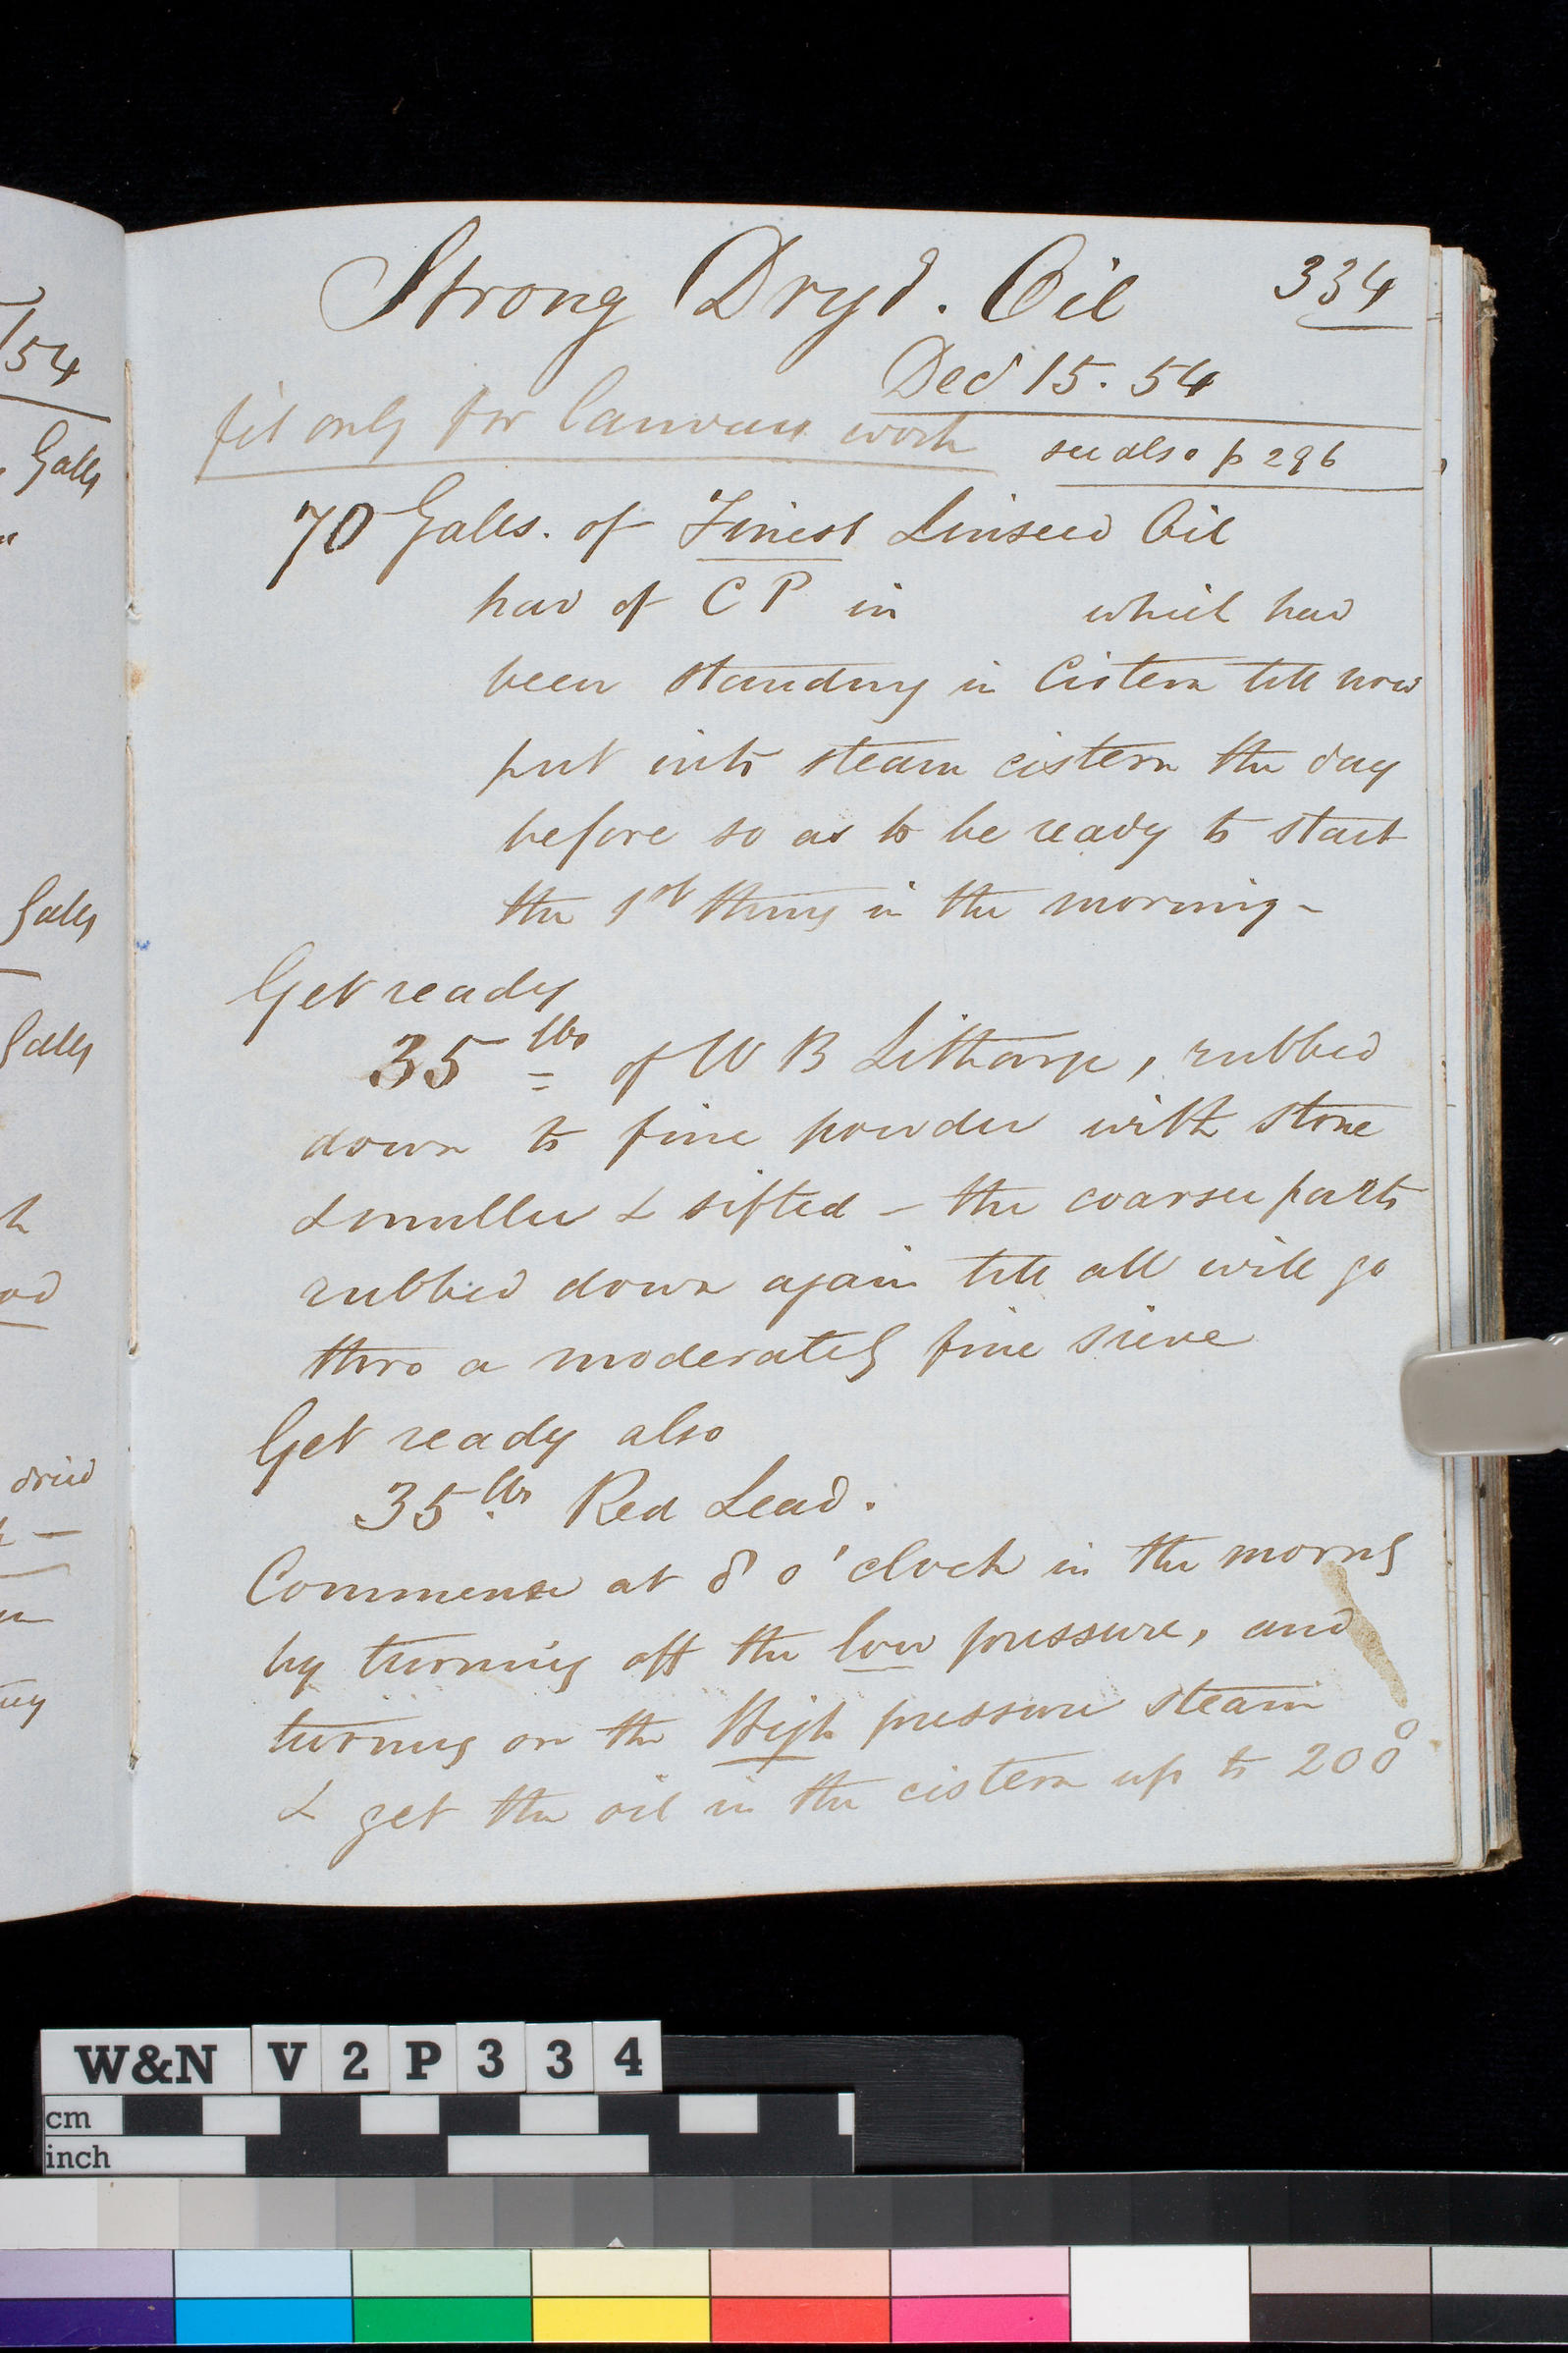 Strong Dryg. Oil 334
Decr 15. 54
fit only for Canvass work see also p 296
70 Galls. of Finest Linseed Oil
had of C P in which had
been standing in Cistern till now
put into steam cistern the day
before so as to be ready to start
the 1st thing in the morning -
Get ready
35 lbs of W B Litharge, rubbed
down to fine powder with stone
& muller & sifted - the coarser parts
rubbed down again till all will go
thro a moderately fine sieve
Get ready also
35 lbs Red Lead.
Commence at 8 o'clock in the morng
by turning off the low pressure, and
turning on the High pressure steam
& get the oil in the cistern up to 200°
/54
Galls
Galls
Galls
dried
W&N V2P334
cm
inch